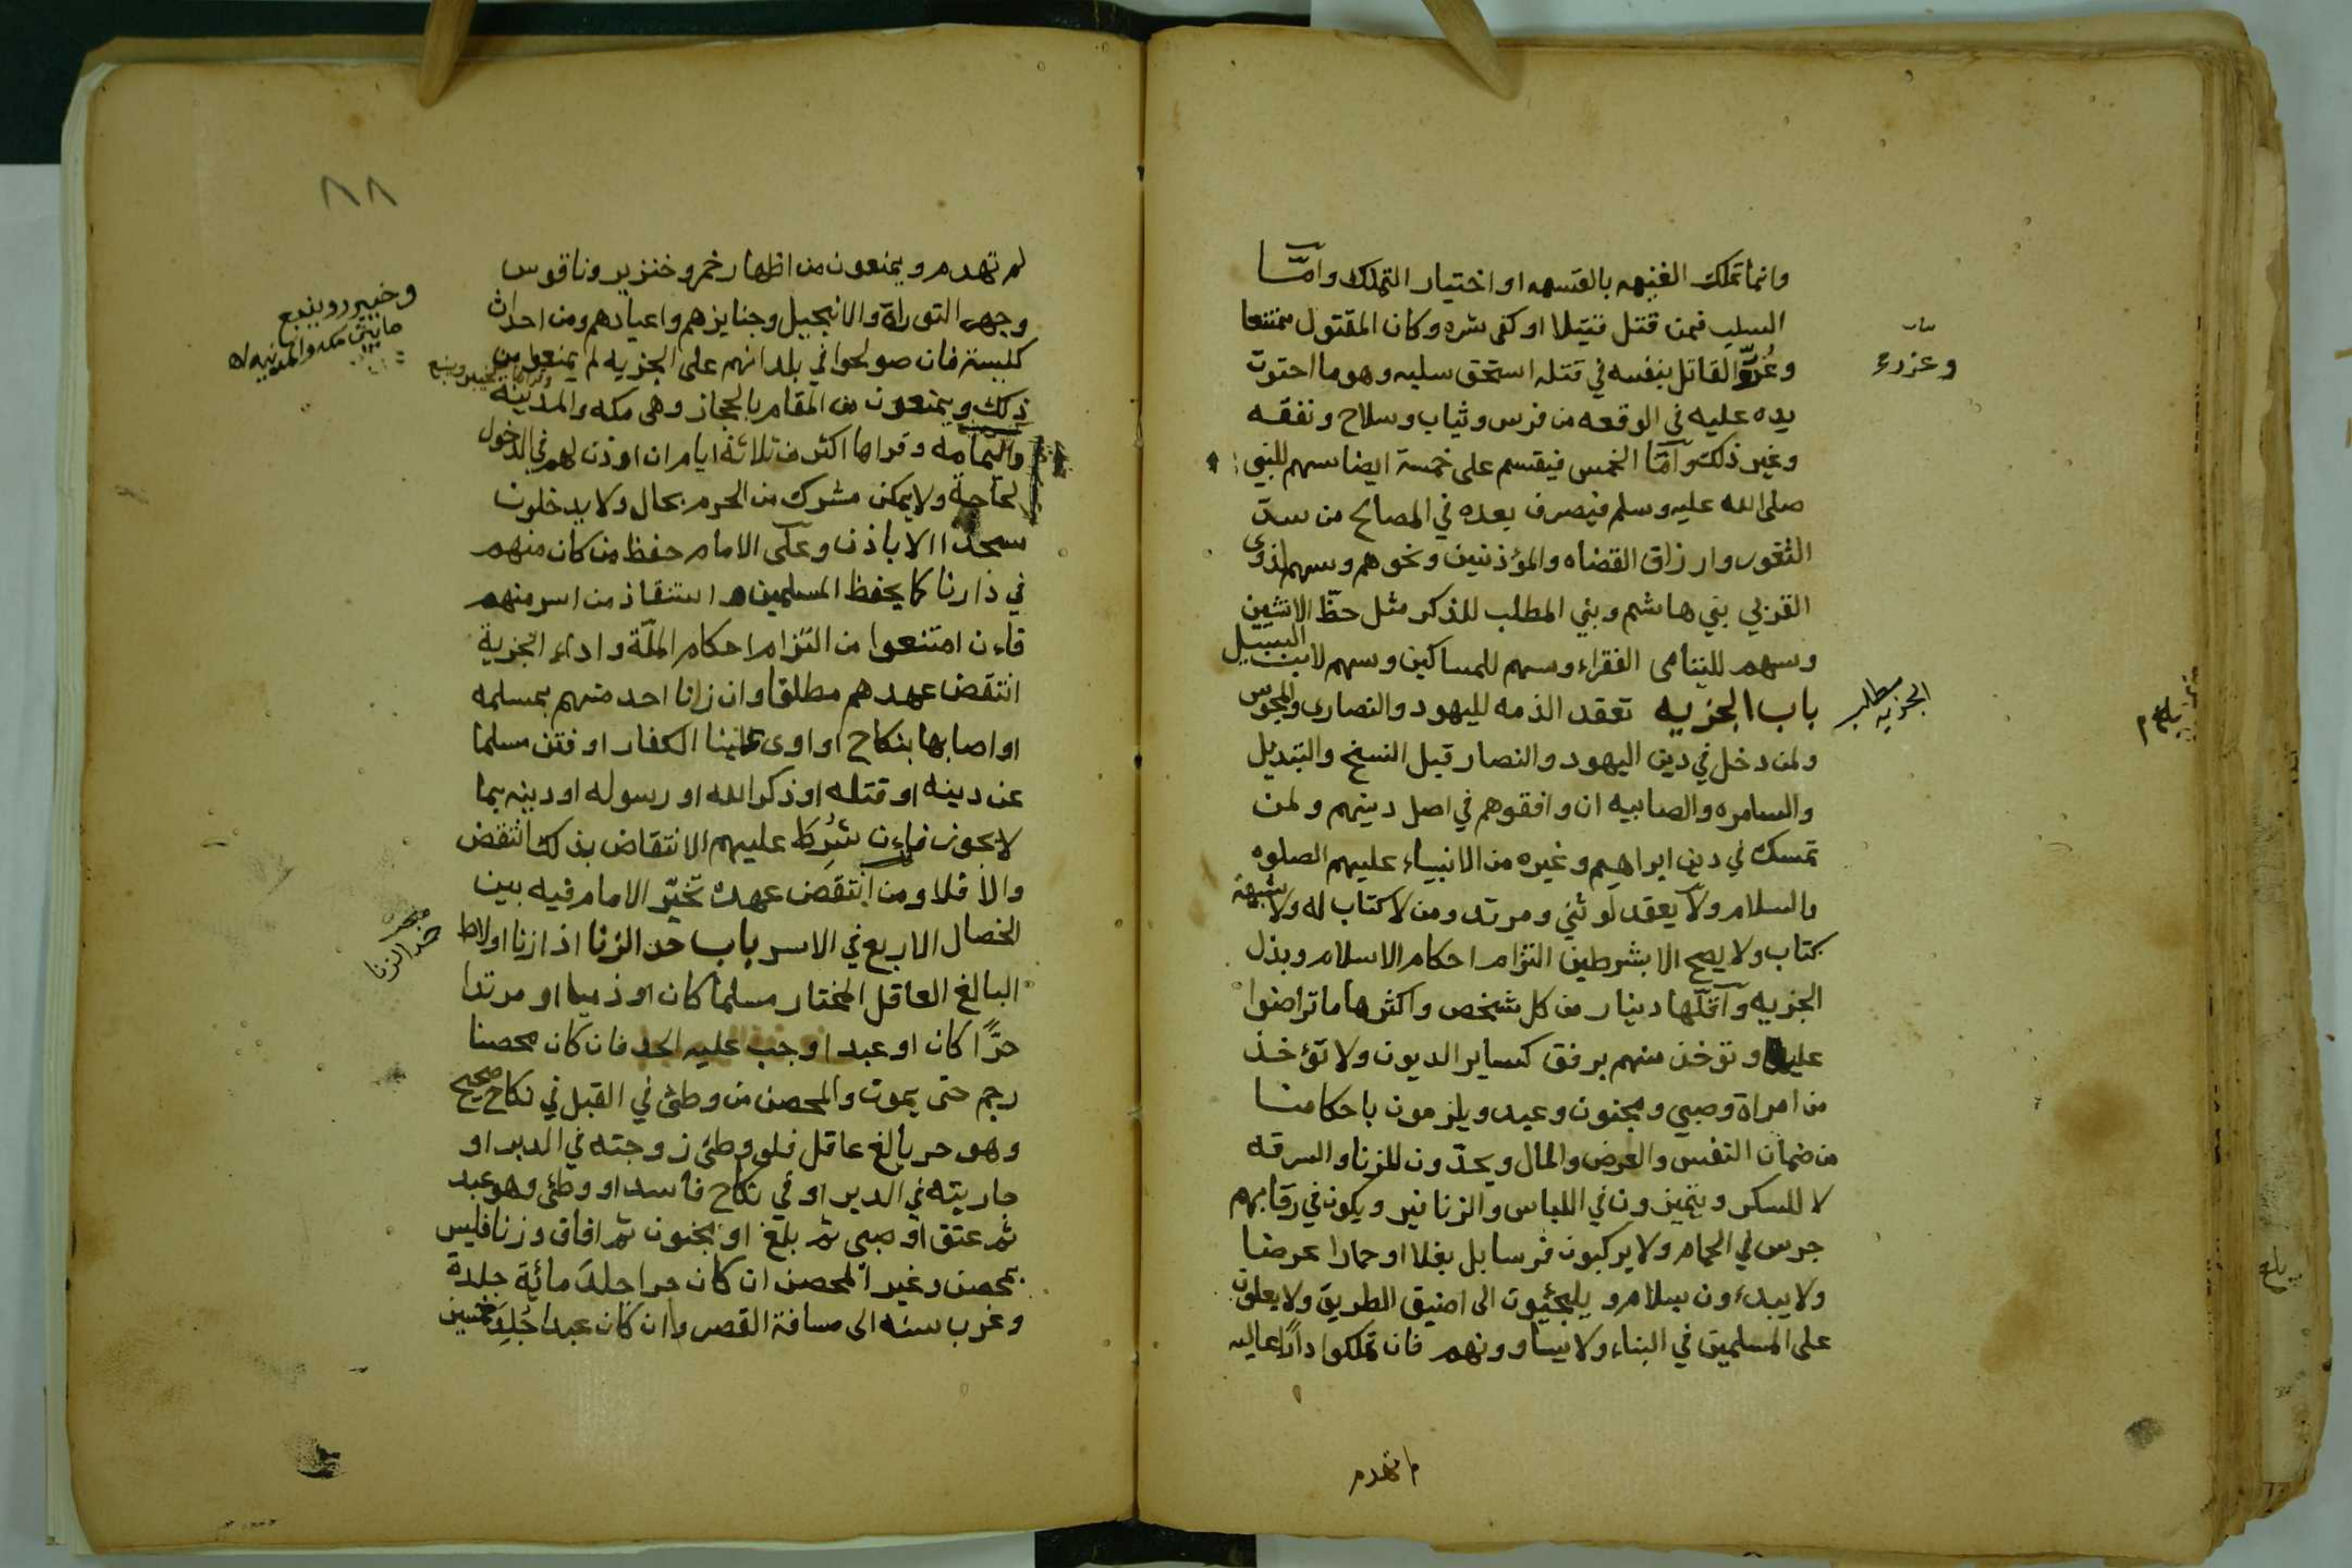 وانما تملك الغنيمه بالقسمه او اختيار التملك وامّا
السلب فمن قتل قتيلا او كفى شره وكان المقتول ممتنعا
وغرّر القاتل بنفسه في قتله استحق سلبه وهو ما احتوت
يده عليه في الوقعه من فرس وثياب وسلاح ونفقه
وغير ذلك وامّا الخمس فيقسم على خمسة ايضا سهم للنبي
صلى الله عليه وسلم فيصرف بعده في المصالح من سدّ
الثغور وارزاق القضاه والمؤذنين ونحوهم وسهم لذوى
القربي بني هاشم وبني المطلب للذكر مثل حظّ الانثيين
وسهم لليتامى الفقراء وسهم للمساكين وسهم لابن السبيل
باب الجزيه تعقد الذمه لليهود والنصارى والمجوس
ولمن دخل في دين اليهود والنصار قبل النسخ والتبديل
والسامره والصابيه ان وافقوهم في اصل دينهم ولمن
تمسك في دين ابراهيم وغيره من الانبياء عليهم الصلوه
والسلام ولا يعقد لوثني ومرتد ومن لا كتاب له ولا شبهة
كتاب ولا يصح الا بشرطين التزام احكام الاسلام وبذل
الجزيه وآقلّها دينار من كل شخص واكثرها ما تراضوا
عليه وتؤخذ منهم برفق كساير الديون ولا تؤخذ
من امراة وصبي ومجنون وعبد ويلزمون باحكامنا
من ضمان النفس والعرض والمال ويحدّون للزنا والسرقه
لا للسكر ويتميزون في اللباس والزنانير ويكون في رقابهم
جرس في الحمام ولا يركبون فرسا بل بغلا او حمارا عرضا
ولا يبدءون بسلام ويلجئون الى اضيق الطريق ولا يعلون
على المسلمين في البناء ولا يساوونهم فان تملكوا دارًا عاليه
مطلب
الجزيه
لم تهدم
٨٨
لم تهدم ويمنعون من اظهار خمر وخنزير وناقوس
وجهر التوراة والانجيل وجنايزهم واعيادهم ومن احداث
كليسة فان صولحوا في بلدانهم على الجزيه لم يمنعوا من
ذلك ويمنعون من المقام بالحجاز وهى مكه والمدينه
واليمامه وقراها اكثر من ثلاثة ايام ان اوذن لهم في الدخول
لحاجة ولا يمكن مشرك من الحرم بحال ولا يدخلون
مسجدا الا باذن وعلى الامام حفظ من كان منهم
في دارنا كما يحفظ المسلمين واستنقاذ من اسر منهم
فاءن امتنعوا من التزام احكام الملّة واداء الجزية
انتقض عهدهم مطلقا وان زنا احد منهم بمسلمه
او اصابها بنكاح او اوى علينا الكفار او فتن مسلما
عن دينه او قتله او ذكر الله او رسوله او دينه بما
لا يجوز فاءن شُرِط عليهم الانتقاض بذلك انتقض
والا فلا ومن انتقض عهده تخيّر الامام فيه بين
الخصال الاربع في الاسر باب حد الزنا اذا زنا او لاط
البالغ العاقل المختار مسلما كان او ذميا او مرتدا
حرًّا كان او عبدا وجب عليه الحد فان كان محصنا
رجم حتى يموت والمحصن من وطئ في القبل في نكاح صحيح
وهو حر بالغ عاقل فلو وطئ زوجته في الدبر او
جاريته في الدبر او في نكاح فاسد او وطئ وهو عبد
ثم عتق او صبي ثم بلغ او مجنون ثم افاق وزنا فليس
بمحصن وغير المحصن ان كان حرا جلد مائة جلدة
وغرب سنه الى مسافة القصر وان كان عبدا جُلِدَ خمسين
حد الزنا